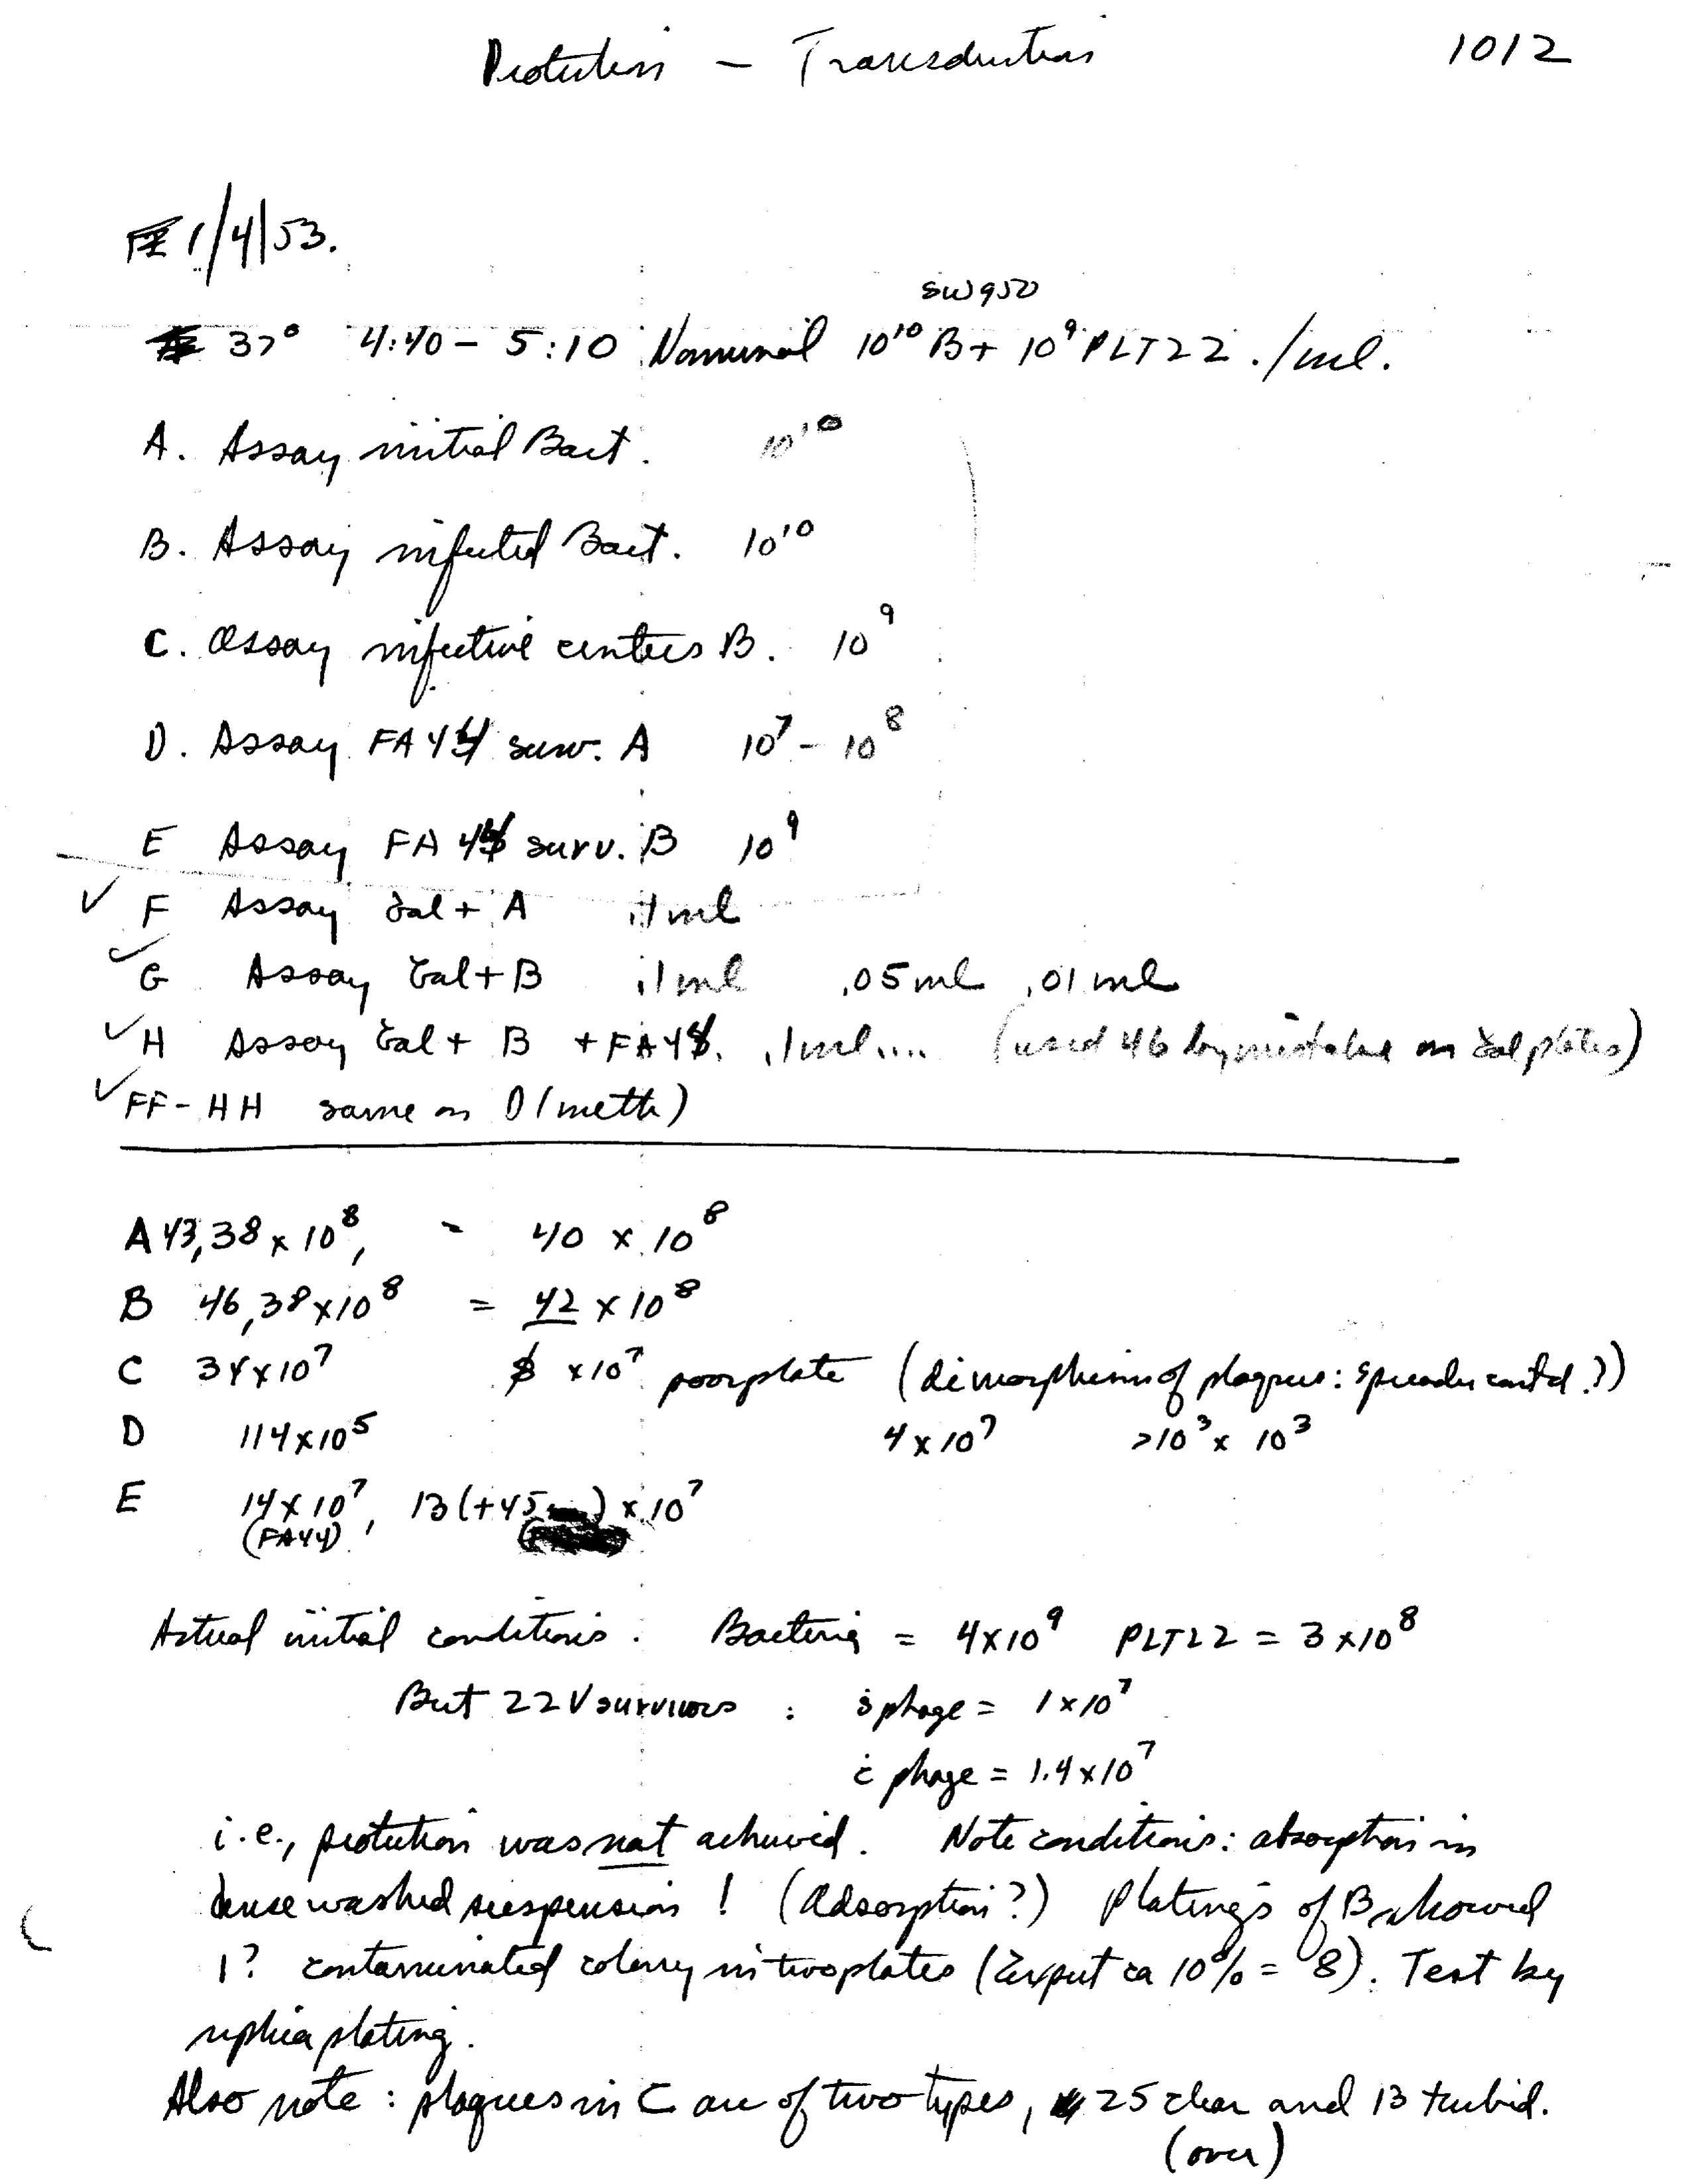 Protection — Transduction 1012
1/4/53.
SW950
37° 4:40 – 5:10 Nominal 10¹⁰ B + 10⁹ PLT22 ./ml.
A. Assay initial Bact. 10¹⁰
B. Assay infected Bact. 10¹⁰
C. Assay infective centers B. 10⁹
D. Assay FA44 surv. A 10⁷ – 10⁸
E Assay FA 44 surv. B 10⁹
✓ F Assay Gal + A .1ml
✓ G Assay Gal + B .1ml .05ml .01ml
✓ H Assay Gal + B + FA44. .1ml.... (used 46 by mistake on Gal plates)
✓ FF – HH same on D(meth)
A 43,38 x 10⁸, - 40 x 10⁸
B 46,38x10⁸ = 42 x 10⁸
C 34x10⁷ x10⁷ poor plate (dimorphism of plaques: spreader contd.?)
D 114x10⁵ 4x10⁷ >10³x 10³
E 14x10⁷, 13(+45 ) x 10⁷
(FA44)
Actual initial conditions. Bacteria = 4x10⁹ PLT22 = 3x10⁸
But 22V survivors : s̄ phage = 1x10⁷
c̄ phage = 1.4x10⁷
i.e., protection was not achieved. Note conditions: absorption in
dense washed suspension! (Adsorption?) Platings of B showed
1? contaminated colony in two plates (Expect ca 10% = 8). Test by
replica plating.
Also note: plaques in C are of two types, 25 clear and 13 turbid.
(over)